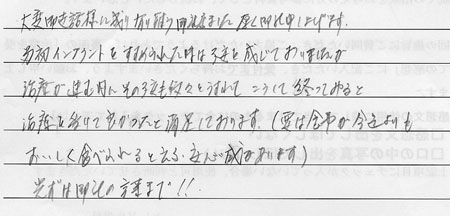 大変御世話様に成り有り難う御座いました 厚く御礼申し上げます。
当初インプラントをすすめられた時は不安を感じておりましたが
治療が進む内にその不安も段々とうすれて こうして終ってみると
治療を受けて良かったと満足しております (実は食事が今迄よりも
おいしく食べられると云う 安心感があります)
先ずは御礼の言葉まで!!